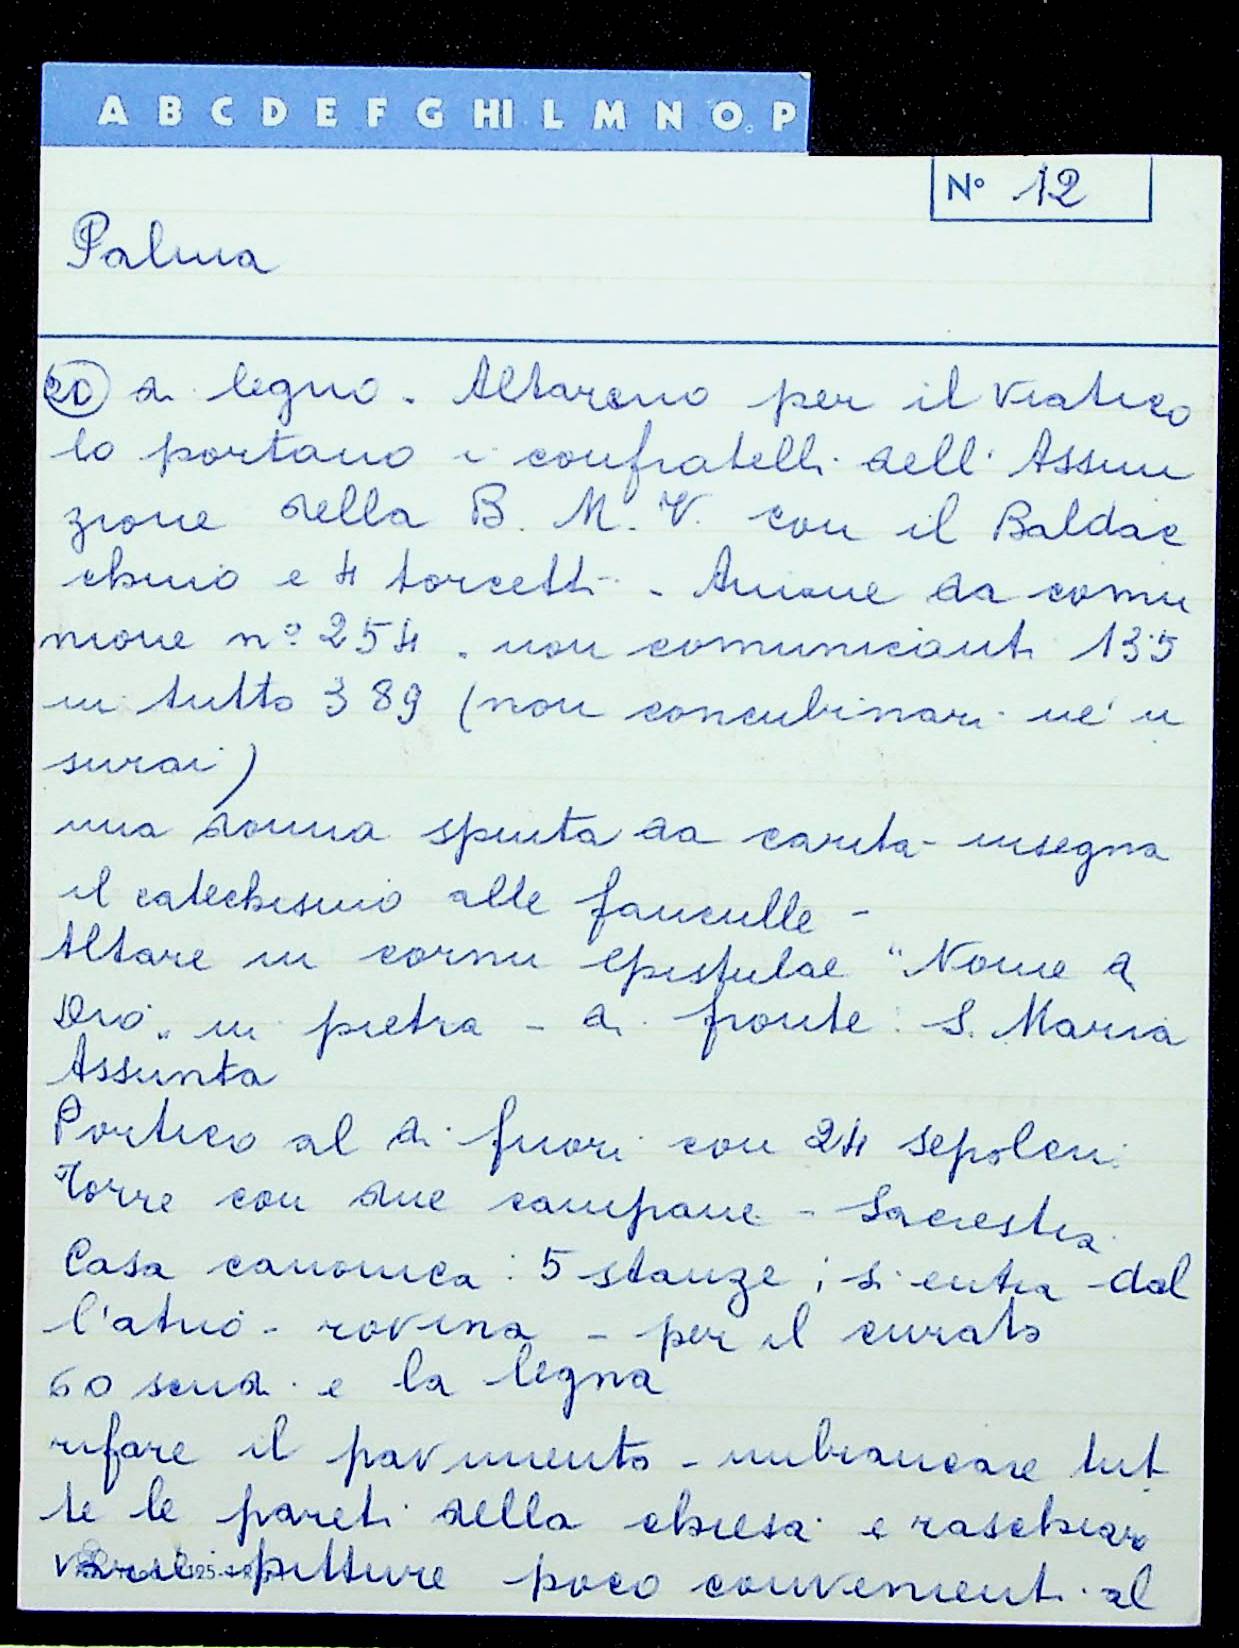 A B C D E F G HI L M N O. P
N° 12
Palma
20 di legno. Altareno per il Viatico
lo portano i confratelli dell'Assun
zione della B. M. V. con il Baldac
chino e 4 torcetti - Anime da comu
nione n° 254. non comunicanti 135
in tutto 389 (non concubinari nè u
surai)
una donna spinta da carità - insegna
il catechismo alle fanciulle -
Altare in cornu Epistulae "Nome di
Dio" in pietra - di fronte: S. Maria
Assunta
Portico al di fuori con 24 sepolcri
Torre con due campane - Sacrestia
Casa canonica: 5 stanze; si entra dal
l'atrio - rovina - per il curato
60 scudi e la legna
rifare il pavimento - imbiancare tut
te le pareti della chiesa e raschiar
varie pitture poco convenienti al